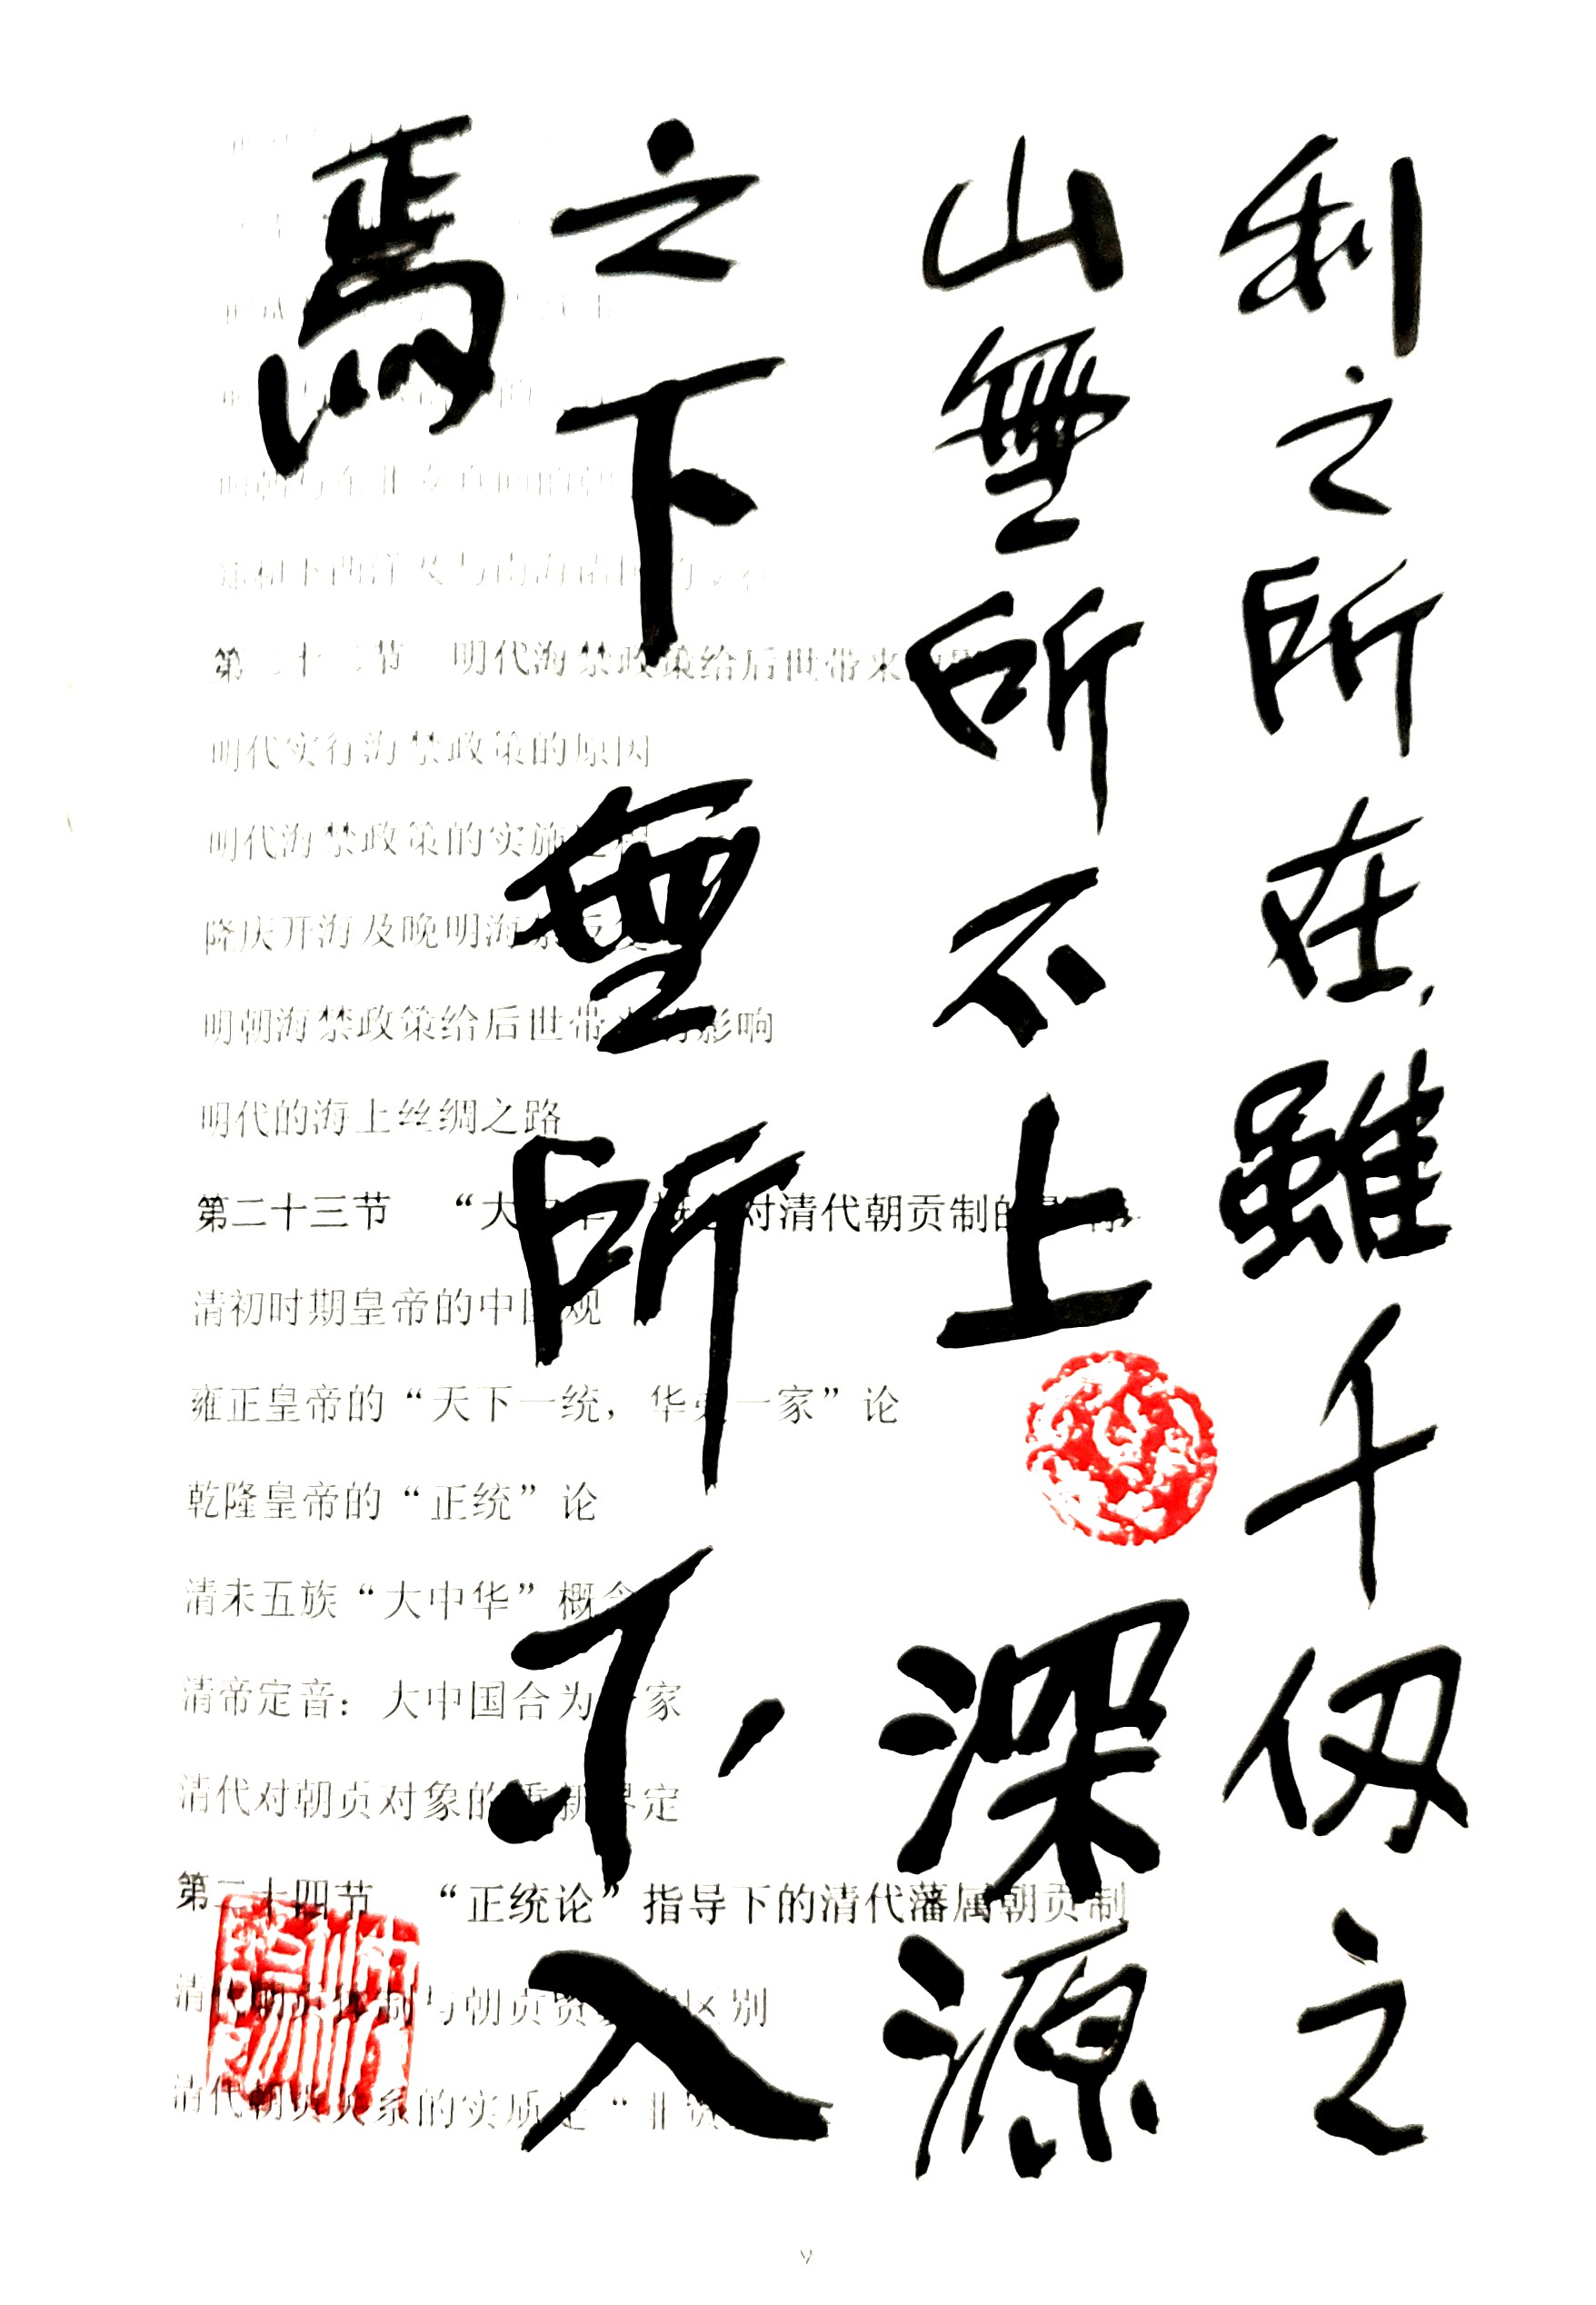 利之所在,雖千仞之
山無所不上
深源
之下無所不入
焉
第二十二节 明代海禁政策给后世带来
明代实行海禁政策的原因
明代海禁政策的实施
隆庆开海及晚明海禁
明朝海禁政策给后世带来的影响
明代的海上丝绸之路
第二十三节 “大 对清代朝贡制的
清初时期皇帝的中国观
雍正皇帝的“天下一统，华夷一家”论
乾隆皇帝的“正统”论
清末五族“大中华”概念
清帝定音：大中国合为一家
清代对朝贡对象的重新界定
第二十四节 “正统论”指导下的清代藩属朝贡制
与朝贡贸 区别
清代朝贡关系的实质是“非贸